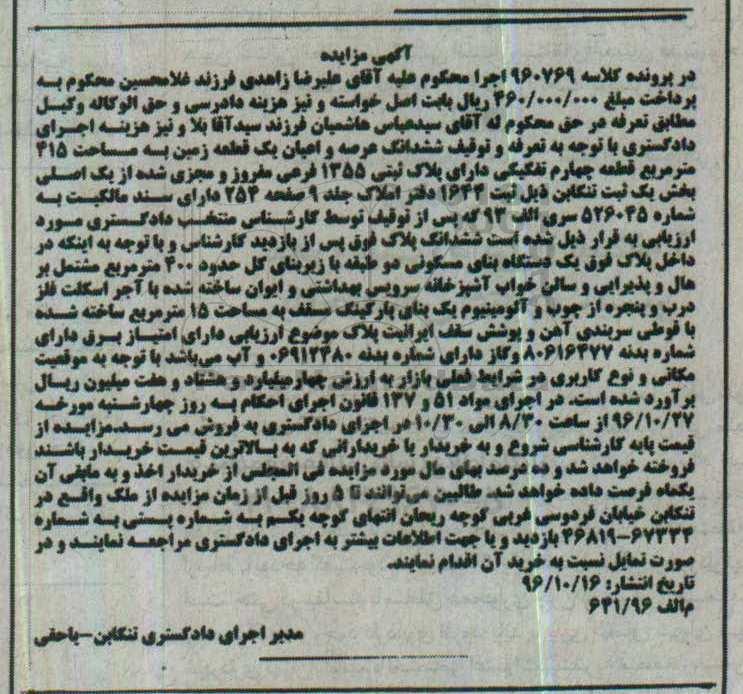 آگهی مزایده
در پرونده کلاسه ۹۶۰۷۶۹ اجرا محکوم علیه آقای علیرضا زاهدی فرزند غلامحسین محکوم به
پرداخت مبلغ ۴۶۰/۰۰۰/۰۰۰ ریال بابت اصل خواسته و نیز هزینه دادرسی و حق الوکاله وکیل
مطابق تعرفه در حق محکوم له آقای سیدعباس هاشمیان فرزند سیدآقا بلا و نیز هزینه اجرای
دادگستری با توجه به تعرفه و توقیف ششدانگ عرصه و اعیان یک قطعه زمین به مساحت ۴۱۵
مترمربع قطعه چهارم تفکیکی دارای پلاک ثبتی ۱۳۵۵ فرعی مفروز و مجزی شده از یک اصلی
بخش یک ثبت تنکابن ذیل ثبت ۱۶۴۴ دفتر املاک جلد ۹ صفحه ۲۵۴ دارای سند مالکیت به
شماره ۵۲۶۰۴۵ سری الف ۹۳ که پس از توقیف توسط کارشناس منتخب دادگستری مورد
ارزیابی به قرار ذیل شده است ششدانگ پلاک فوق پس از بازدید کارشناس و با توجه به اینکه در
داخل پلاک فوق یک دستگاه بنای مسکونی دو طبقه با زیربنای کل حدود ۴۰۰ مترمربع مشتمل بر
هال و پذیرایی و سالن خواب آشپزخانه سرویس بهداشتی و ایوان ساخته شده با آجر اسکلت فلز
درب و پنجره از چوب و آلومینیوم یک بنای پارکینگ سقف به مساحت ۱۵ مترمربع ساخته شده
با قوطی سربندی آهن و پوشش سقف ایرانیت پلاک موضوع ارزیابی دارای امتیاز برق دارای
شماره بدنه ۸۰۶۱۶۴۷۷ وگاز دارای شماره بدنه ۰۶۹۱۲۳۸۰ و آب می‌باشد با توجه به موقعیت
مکانی و نوع کاربری در شرایط فعلی بازار به ارزش چهارمیلیارد و هشتاد و هفت میلیون ریال
برآورد شده است. در اجرای مواد ۵۱ و ۱۳۷ قانون اجرای احکام به روز چهارشنبه مورخه
۹۶/۱۰/۲۷ از ساعت ۸/۳۰ الی ۱۰/۳۰ در اجرای دادگستری به فروش می رسد.مزایده از
قیمت پایه کارشناسی شروع و به خریدار یا خریدارانی که به بالاترین قیمت خریدار باشند
فروخته خواهد شد و ده درصد بهای مال مورد مزایده فی المجلس از خریدار اخذ و به مابقی آن
یکماه فرصت داده خواهد شد. طالبین می‌توانند تا ۵ روز قبل از زمان مزایده از ملک واقع در
تنکابن خیابان فردوسی غربی کوچه ریحان انتهای کوچه یکم به شماره پستی به شماره
۴۶۸۱۹-۶۷۳۳۴ بازدید و یا جهت اطلاعات بیشتر به اجرای دادگستری مراجعه نمایند و در
صورت تمایل نسبت به خرید آن اقدام نمایند.
تاریخ انتشار: ۹۶/۱۰/۱۶
م‌الف ۶۴۱/۹۶
مدیر اجرای دادگستری تنکابن-یاحقی